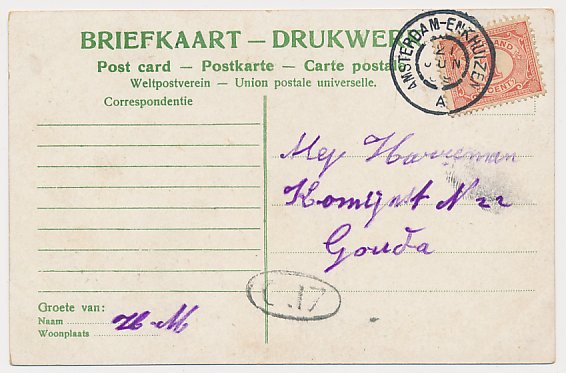 BRIEFKAART — DRUKWER
Post card — Postkarte — Carte postale
Weltpostverein — Union postale universelle.
Correspondentie
AMSTERDAM-ENKHUIZEN
21 JUN
A
Mej Harreman
Komijnst N 22
Gouda
17
Groete van:
Naam H-M
Woonplaats